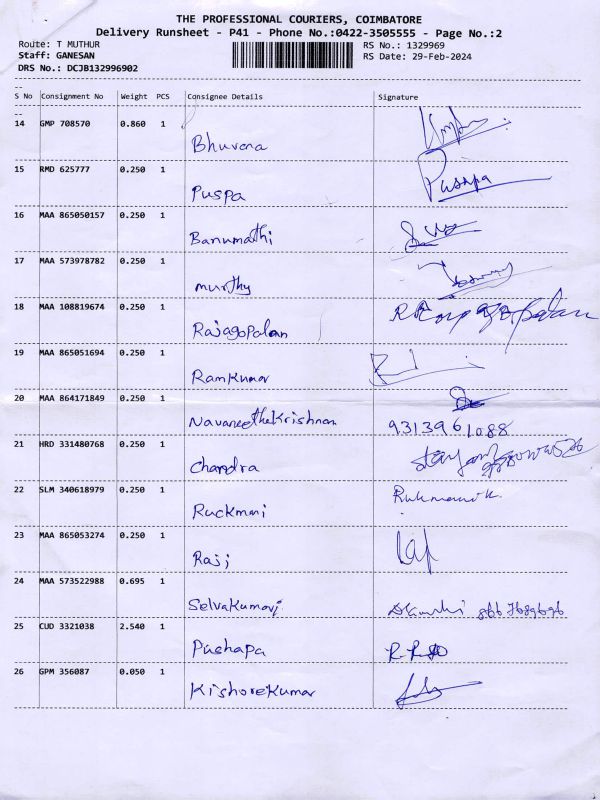 THE PROFESSIONAL COURIERS, COIMBATORE
Delivery Runsheet - P41 - Phone No.:0422-3505555 - Page No.:2
Route: T MUTHUR RS No.: 1329969
Staff: GANESAN RS Date: 29-Feb-2024
DRS No.: DCJB132996902
S No Consignment No Weight PCS Consignee Details Signature
14 GMP 708570 0.860 1
Bhuvana
15 RMD 625777 0.250 1
Puspa Puspa
16 MAA 865050157 0.250 1
Banumathi
17 MAA 573978782 0.250 1
murthy
18 MAA 108819674 0.250 1
Rajagopalan
19 MAA 865051694 0.250 1
Ramkumar
20 MAA 864171849 0.250 1
Navaneethekrishnan 9313961088
21 HRD 331480768 0.250 1
Chandra
22 SLM 340618979 0.250 1
Ruckmani
23 MAA 865053274 0.250 1
Raji
24 MAA 573522988 0.695 1
Selvakumari
25 CUD 3321038 2.540 1
Pushapa
26 GPM 356087 0.050 1
Kishorekumar